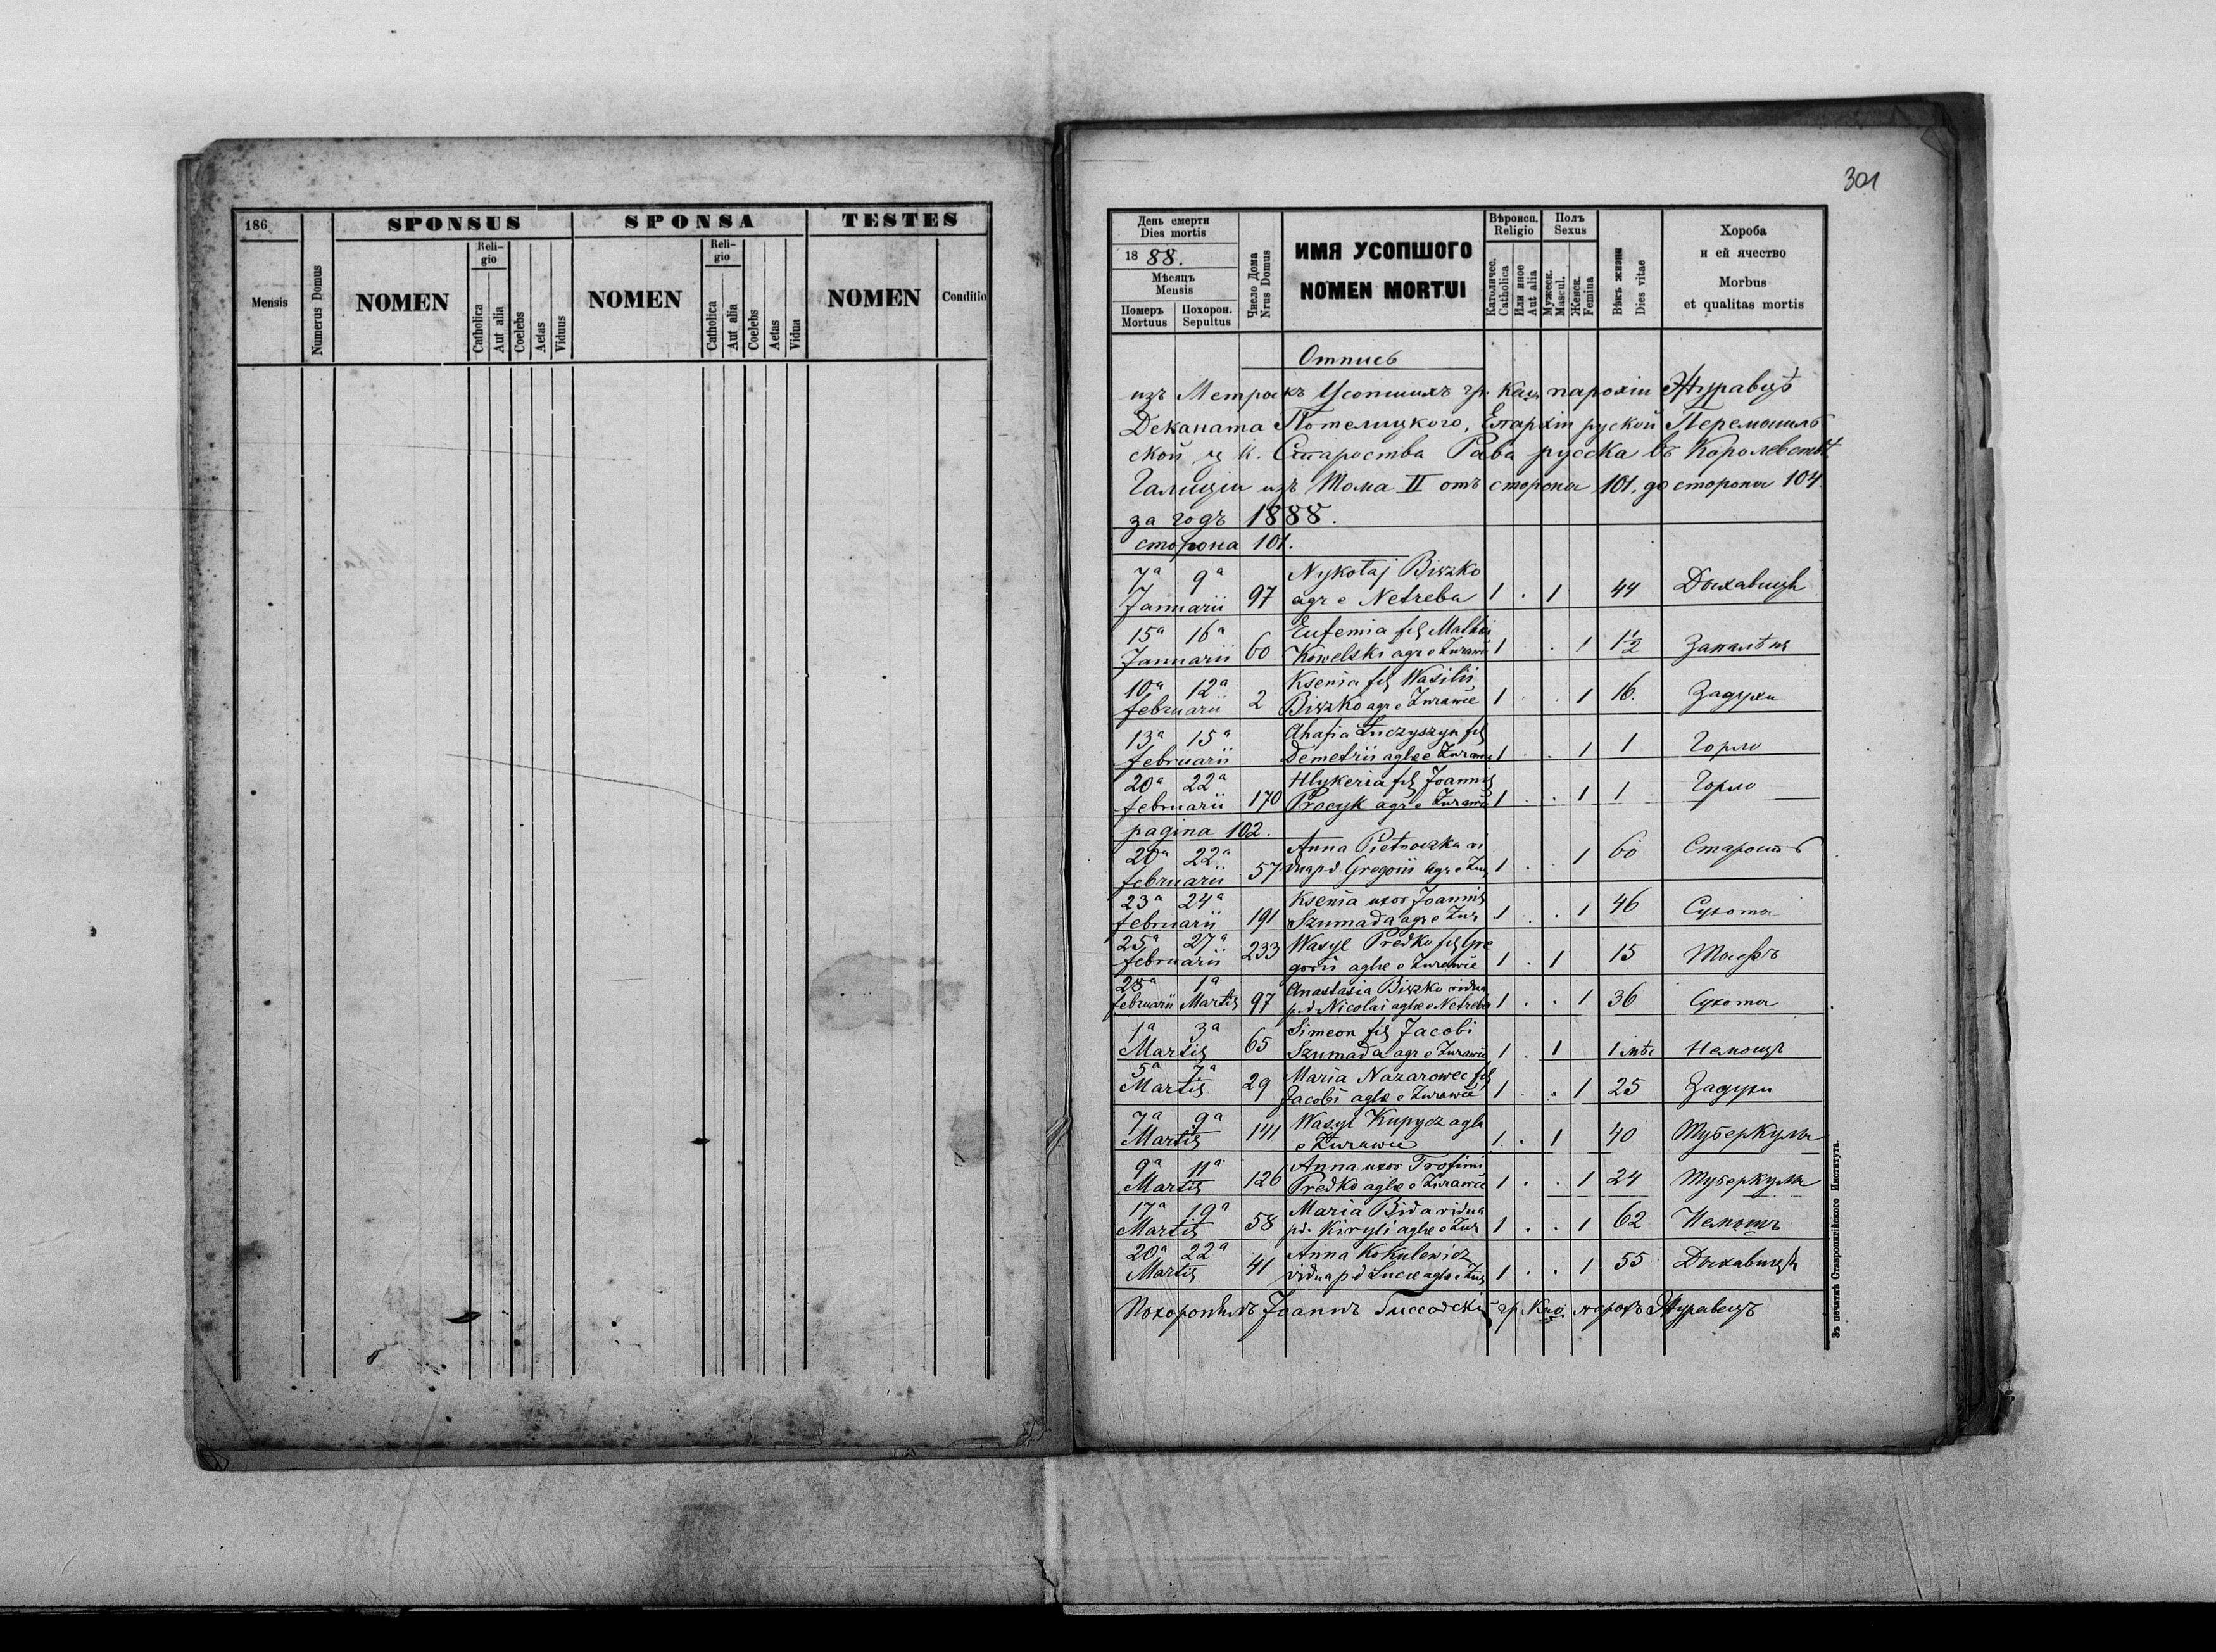 186
SPONSUS
SPONSA
TESTES
Mensis
Numerus Domus
NOMEN
Religio
Catholica
Aut alia
Coelebs
Aetas
Viduus
NOMEN
Religio
Catholica
Aut alia
Coelebs
Aetas
Vidua
NOMEN
Conditio
301
День смерти
Dies mortis
1888.
Мѣсяцъ
Mensis
Померъ
Mortuus
Похорон.
Sepultus
Число Дома
Nrus Domus
ИМЯ УСОПШОГО
NOMEN MORTUI
Вѣроисп.
Religio
Католичес.
Catholica
Или иное
Aut alia
Полъ
Sexus
Мужеск.
Mascul.
Женск.
Femina
Вѣкъ жизни
Dies vitae
Хороба
и ей ячество
Morbus
et qualitas mortis
Отпись
изъ Метрикъ Усопшихъ гр. кат. парохіи Журавцѣ
Деканата Потелицкого, Епархіи руской Перемышль
ской ц. к. Староства Рава русска въ Королевствѣ
Галиціи изъ Тома II отъ стороны 101. до стороны 104
за годъ 1888.
сторона 101.
7ª 9ª Nykołaj Biszko
Januarii 97 agr e Netreba 1 . 1 44 Дыхавица
15ª 16ª Eufemia fil Mathei
Januarii 60 Kowelski agr e Żurawce 1 . 1 1½ Запалѣня
10ª 12ª Ksenia fil Wasilii
februarii 2 Biszko agr e Żurawce 1 . . 1 16. Задухи
13ª 15ª Ahafia Łuczyszyn fil
februarii Demetrii aglae e Żurawce 1 . . 1 1 Горло
20ª 22ª Hlykeria fil Joannis
februarii 170 Procyk agr e Żurawce 1 . . 1 1 Горло
pagina 102.
20ª 22ª Anna vi
februarii 57 dua p.d Gregorii agr e Żur 1 . . 1 60 Старость
23ª 24ª Ksenia uxor Joannis
februarii 191 Szumada agr e Żur 1 . . 1 46 Сухота
25ª 27ª 233 Wasyl Predko fil Gre
februarii gorii aglae e Żurawce 1 . 1 15
28ª 1ª Anastasia Biszko vidua
februarii Martis 97 p.d Nicolai aglae e Netreba 1 . . 1 36 Сухота
1ª 3ª Simeon fil Jacobi
Martis 65 Szumada agr e Żurawce 1 . 1 1 мѣс Немощь
5ª 7ª Maria Nazarowec fil
Martis 29 Jacobi aglae e Żurawce 1 . . 1 25 Задухи
7ª 9ª Wasyl Kupycz agla
Martis 141 e Żurawce 1 . 1 40 Туберкулы
9ª 11ª Anna uxor Trofimi
Martis 126 Predko aglae e Żurawce 1 . . 1 24 Туберкулы
17ª 19ª Maria Bida vidua
Martis 58 pd. Kiryli aglae e Żur 1 . . 1 62 Немощь
20ª 22ª Anna Kokulewicz
Martis 41 vidua p d Lucae aglae e Żur 1 . . 1 55 Дыхавица
Похоронилъ Іоаннъ гр. кат. парохъ Журавецъ
Зъ печатнѣ Ставропигійского Института.